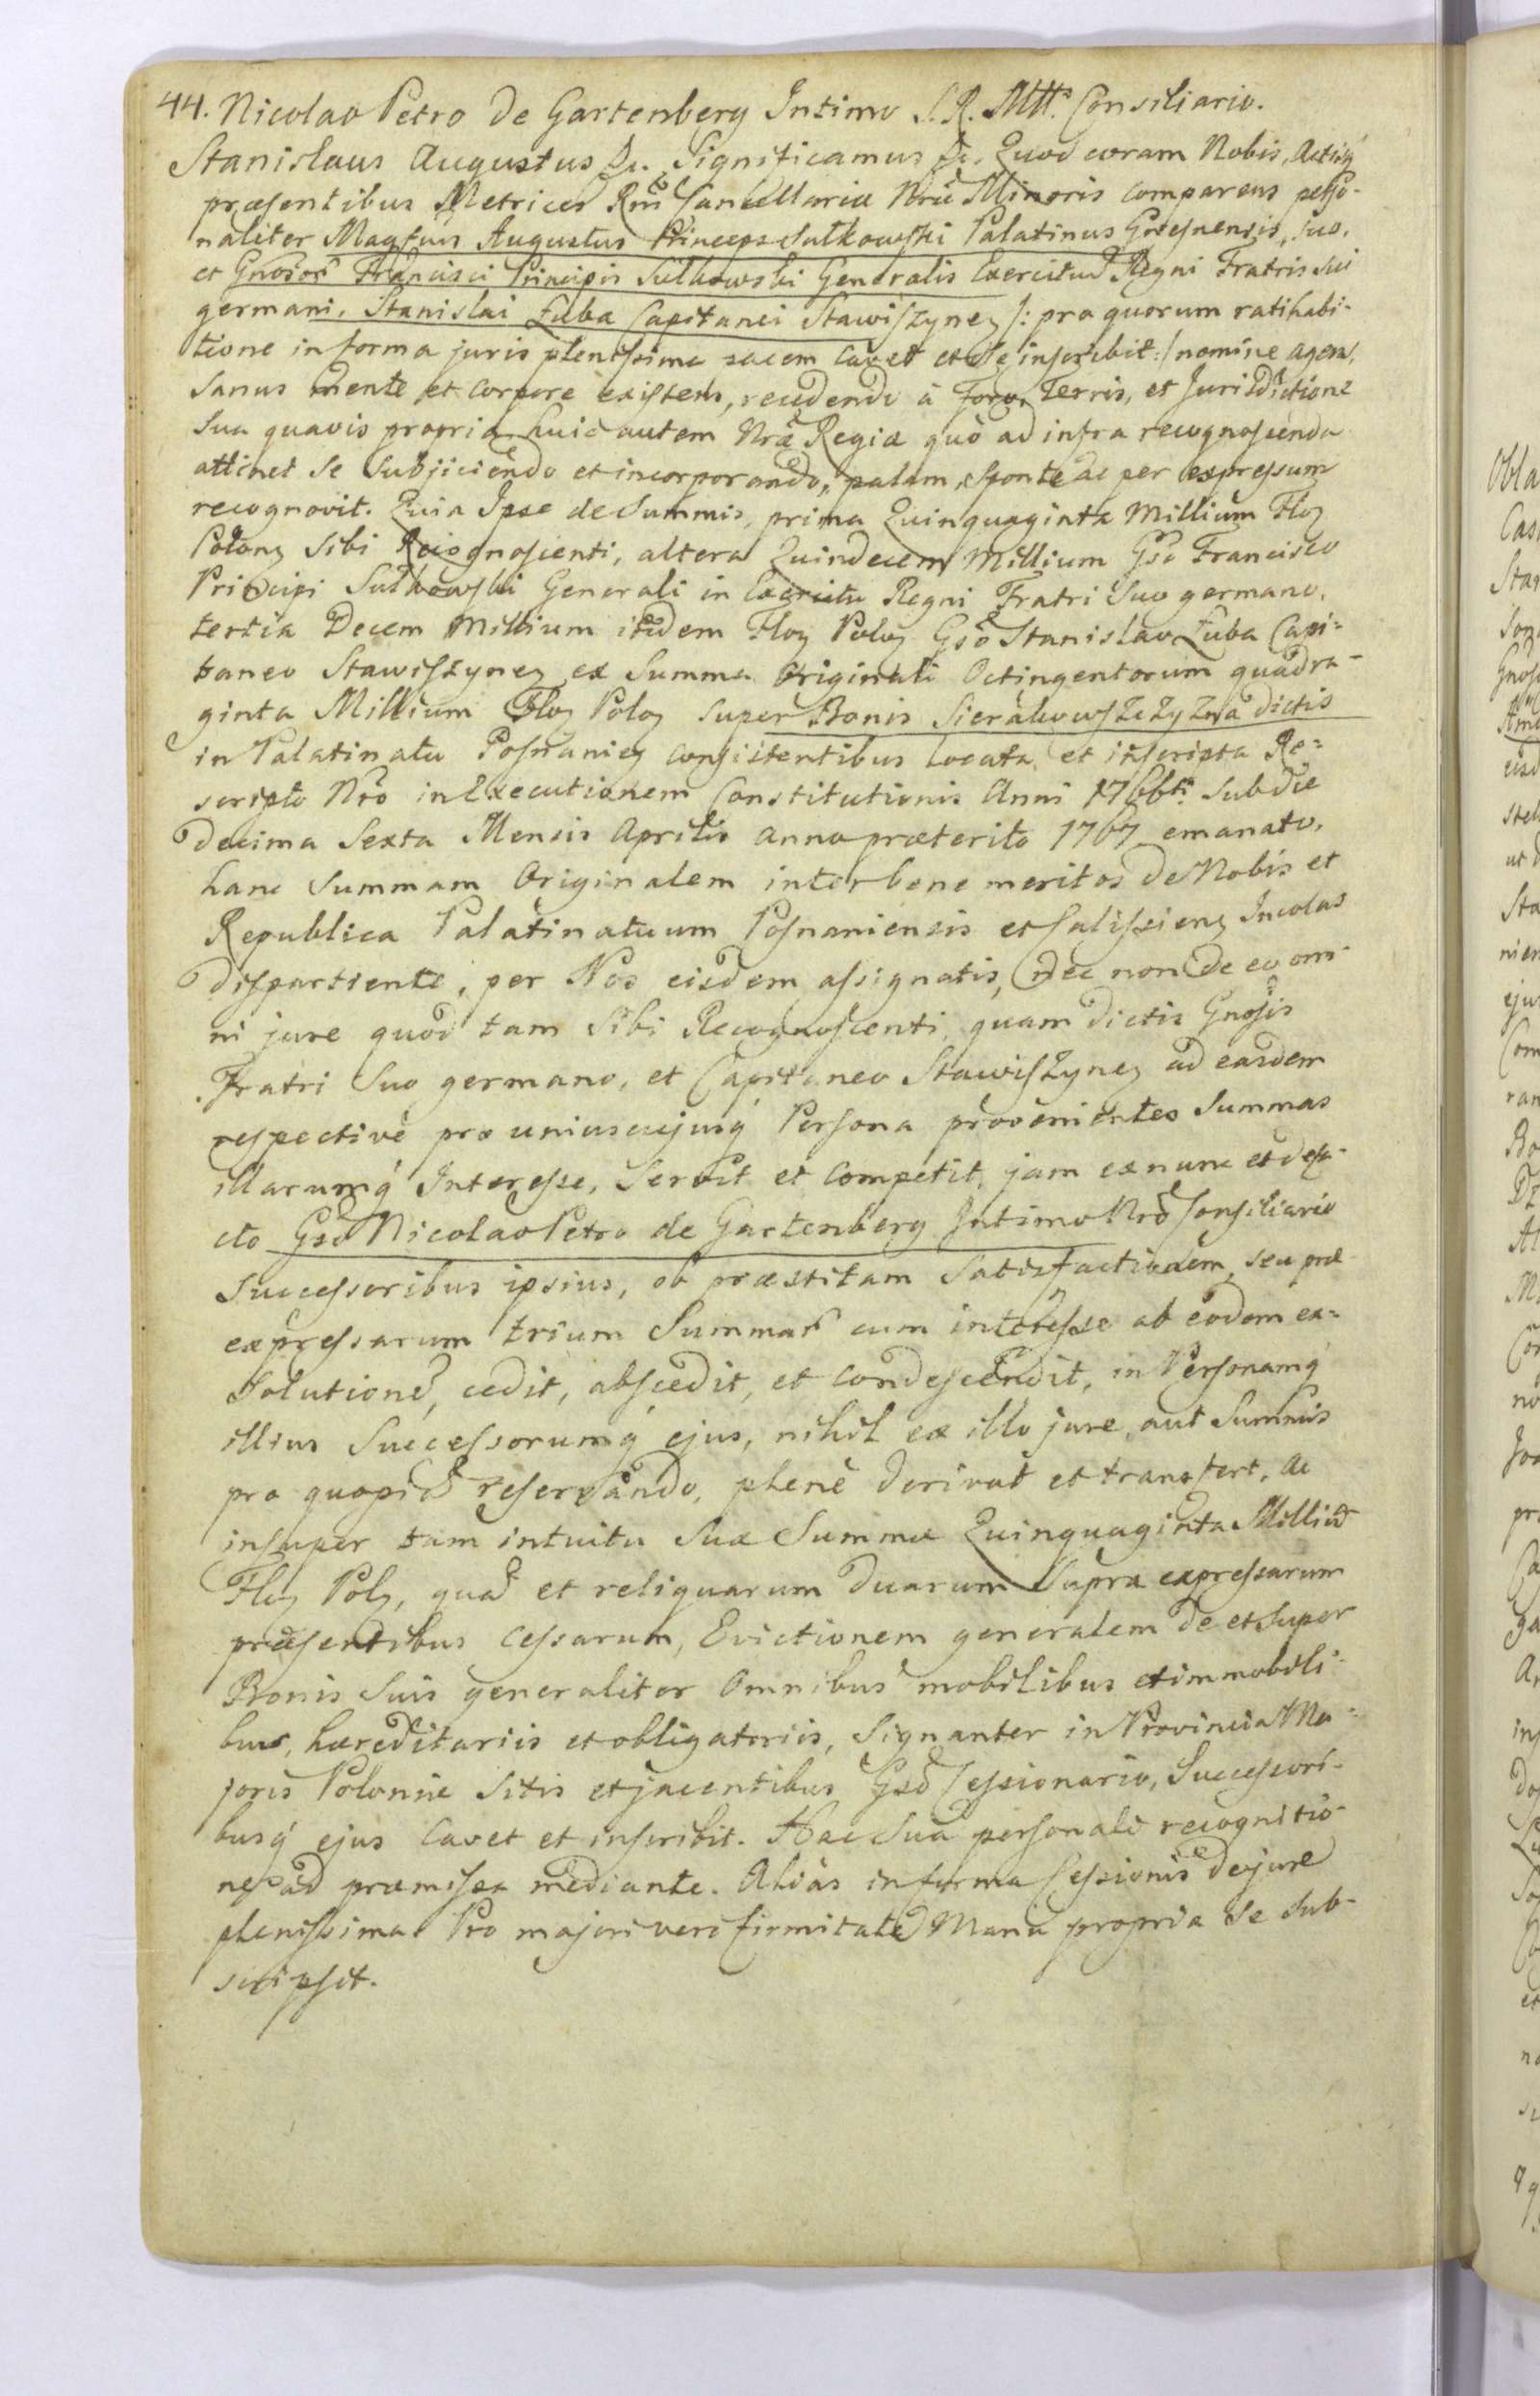 44. Nicolao Petro de Gartenberg Intimo S. R. Mtt. Consiliario.
Stanislaus Augustus &c. Significamus &c. Quod coram Nobis, Actisq́
præsentibus Metrices Rni Cancellariæ Nræ Minoris comparens perso-
naliter Magfcus Augustus Princeps Sułkowski Palatinus Gnesnensis, suo,
et Gnosor Francisci Principis Sułkowski Generalis Exercitus Regni Fratris sui
germani, Stanislai Łuba Capitanei Stawiszynen /: pro quorum ratihabi-
tione in forma juris plenissima cavet et se inscribit :/ nomine agens,
Sanus mente et corpore existens, recedendo à Foro, Terris, et Jurisdictione
Sua quavis propria huic autem Nræ Regiæ quò ad infra recognoscenda
attinet se subjiciendo et incorporando, palam, sponte ac per expressum
recognovit. Quia Ipse de Summis, prima Quinquaginta Millium Flor
Polonz Sibi Recognoscenti, altera Quindecem Millium Gso Francisco
Principi Sułkowski Generali in Exercitu Regni Fratri Suo germano,
tertia Decem Millium itidem Floz Poloz Gsò Stanislao Łuba Capi-
taneo Stawiszynez ex Summa Originali Octingentorum quadra-
ginta Millium Floz Poloz super Bonis Sierakowszczyzna dictis
in Palatinatu Posnaniez consistentibus locata, et inscripta Re-
scripto Nrò in Executionem Constitutionis Anni 1766ti sub die
decima Sexta Mensis Aprilis anno præterito 1767 emanato,
hanc Summam Originalem inter bene meritos de Nobis et
Republica Palatinatuum Posnaniensis et Calissienz Incolas
dispartiente, per Nos eisdem assignatis, nec non de eo om-
ni jure quod tam Sibi Recognoscenti, quam dictis Gnosis
Fratri Suo germano, et Capitaneo Stawiszynez ad easdem
respectivè pro uniuscujusq́ Persona provenientes Summas
illarumq́ Interesse, servit et competit, jam ex nunc et de fa-
cto Gsò Nicolao Petro de Gartenberg Intimo Nrò Consiliario
Successoribus ipsius, ob præstitam Satisfactionem, seu præ
expressarum trium Summar cum interesse ab eodem ex-
solutione, cedit, abscedit, et condescendit, in Personamq́
illius Successorumq́ ejus, nihil ex illo jure aut Summis
pro quopiã reservando, plenè derivat et transfert, ac
insuper tam intuitu Suæ Summæ Quinquaginta Milliu
Floz Polz, quã et reliquarum duarum supra expressarum
præsentibus cessarum, Evictionem generalem de et super
Bonis Suis generaliter omnibus mobilibus et immobili-
bus, hæreditariis et obligatoriis, signanter in Provincia Ma-
joris Poloniæ Sitis et jacentibus Gsò Cessionario, Successori-
busq́ ejus cavet et inscribit. Hac Sua personali recognitio-
ne ad præmissa mediante. Aliàs in forma Cessionis de jure
plenissima Pro majori vero firmitate Manu propria se sub-
scripsit.